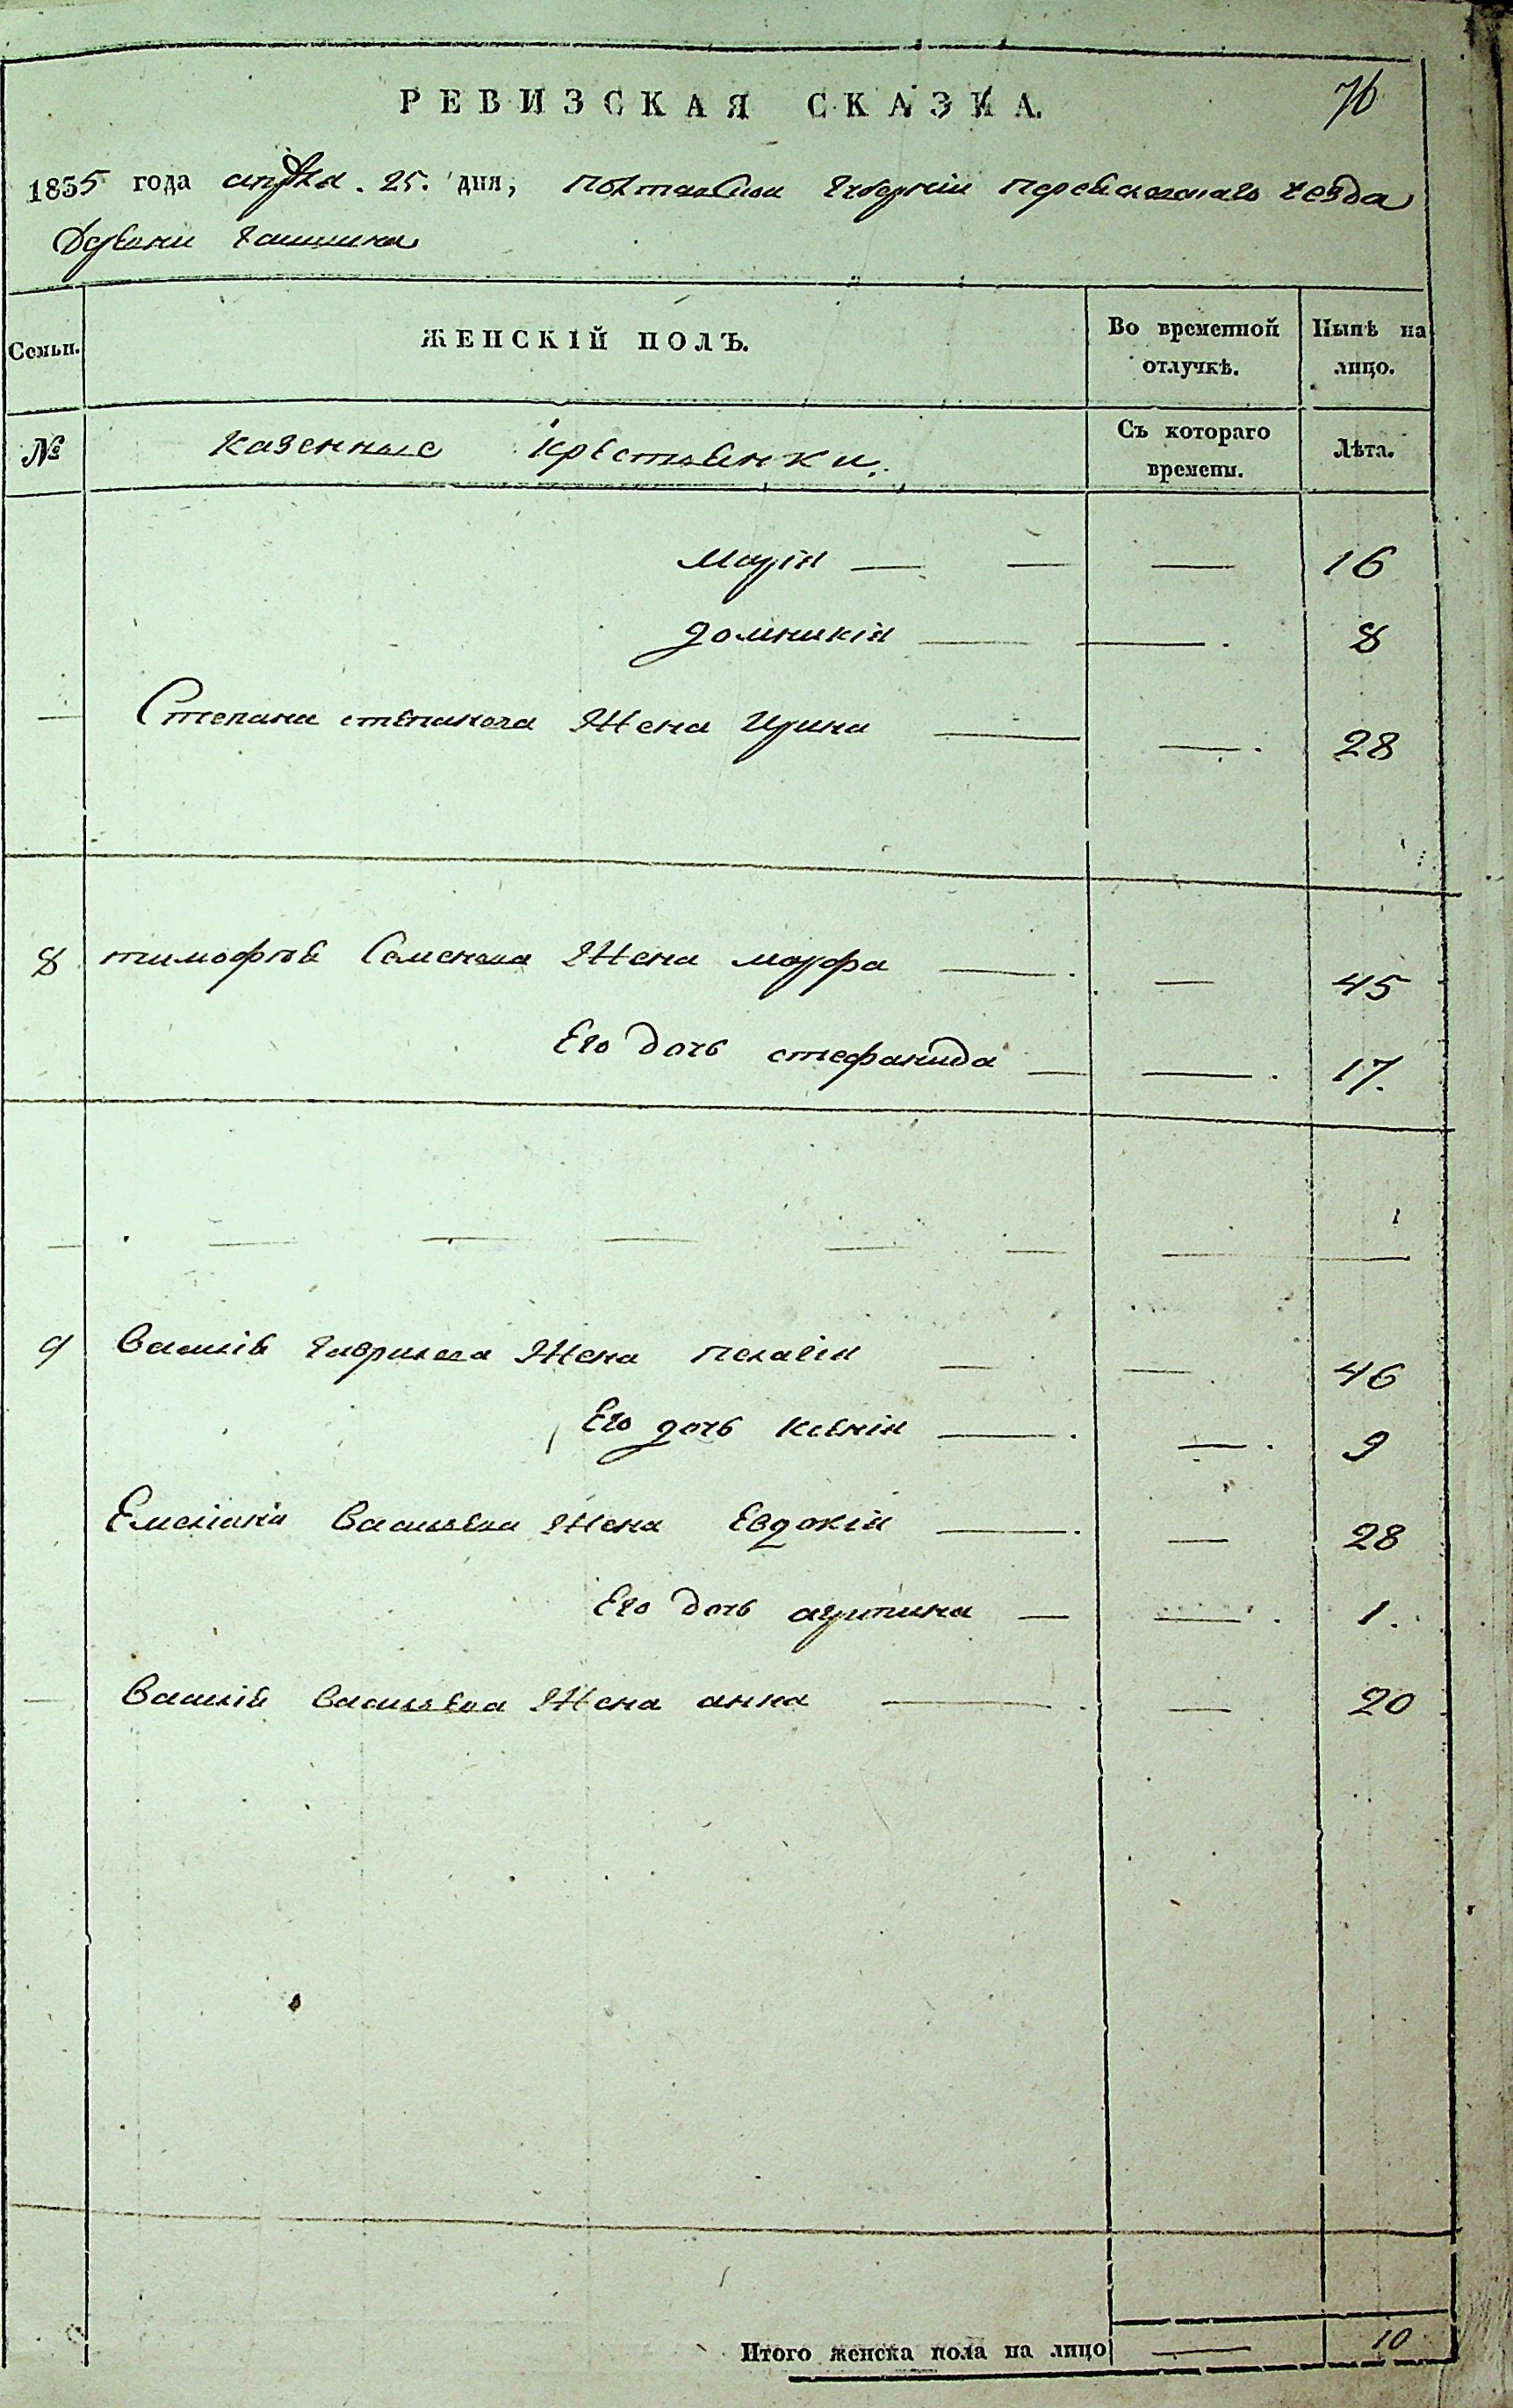 РЕВИЗСКАЯ СКАЗКА.
76
1835 года апреля. 25. дня, полтавской губернии переяславскаго уезда
Деревни гашина
Семьи. ЖЕНСКІЙ ПОЛЪ. Во временной отлучкѣ. Нынѣ на лицо.
№ казенные крестьянки. Съ котораго времени. Лѣта.
марія — — — 16
домникія — — 8
— Степана степанова Жена ирина — — 28
8 тимофѣя Семенова Жена марфа — — 45
Его дочь стефанида — — 17.
9 Василія гаврилова Жена пелагія — — 46
Его дочь ксенія — — 9
Емеліана Васильева Жена Евдокія — — 28
Его дочь агрипина — — 1.
— Василія Васильева Жена анна — — 20
Итого женска пола на лицо — 10